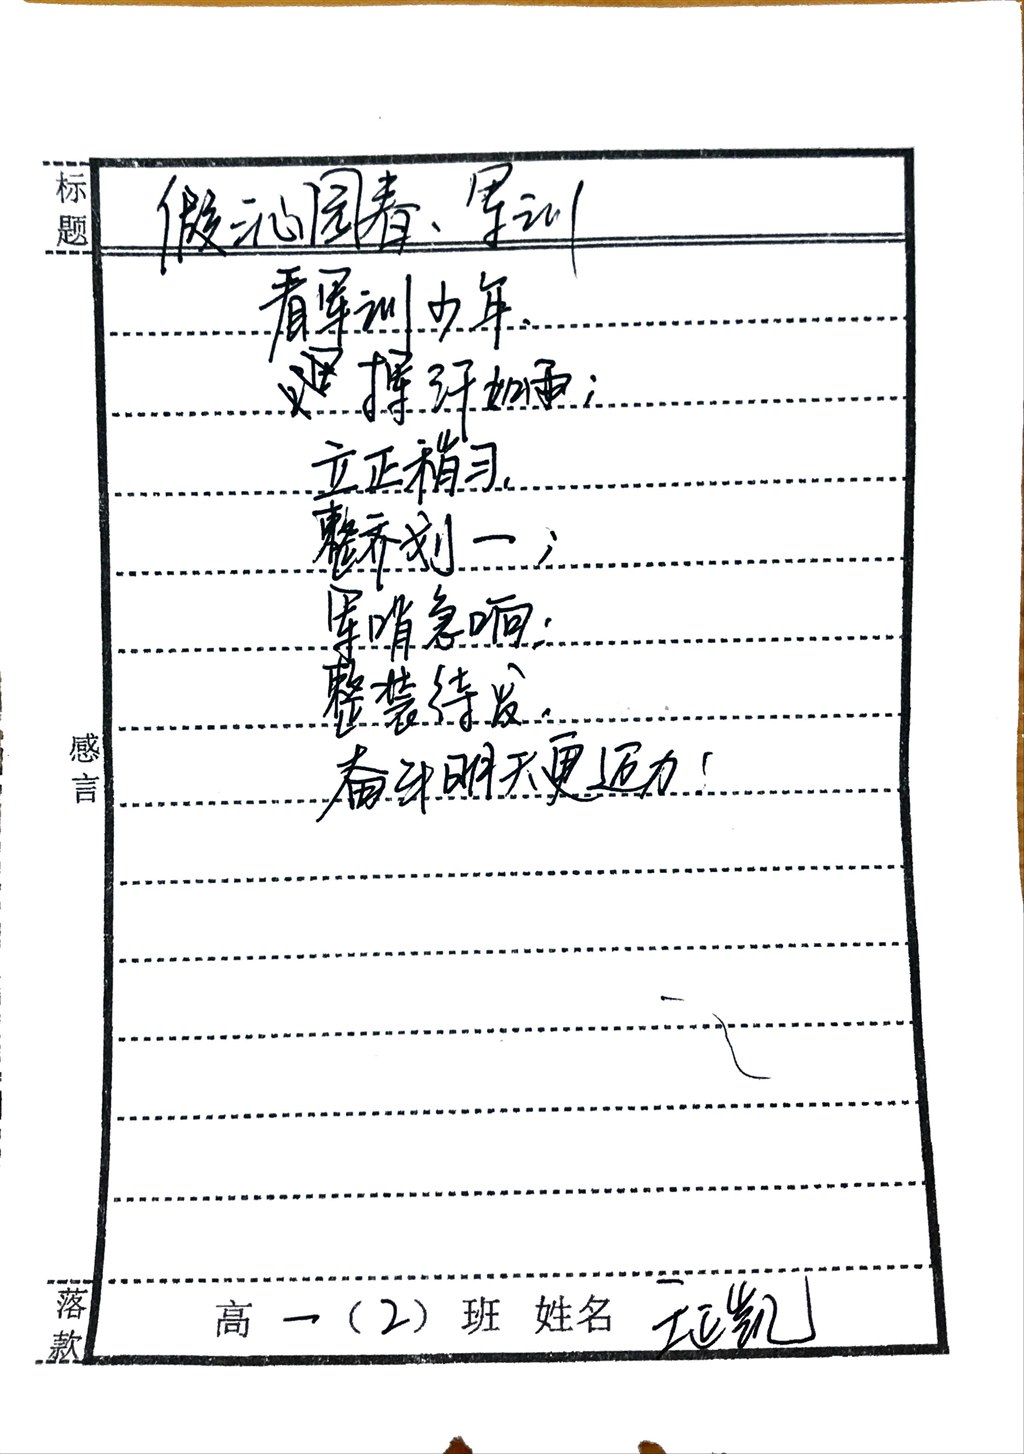 标题 沁园春、军训
看军训少年、
挥汗如雨；
立正稍习、
整齐划一；
军哨急响；
整装待发、
感言
奋斗明天更迈力！
落款 高一（2）班 姓名 凯